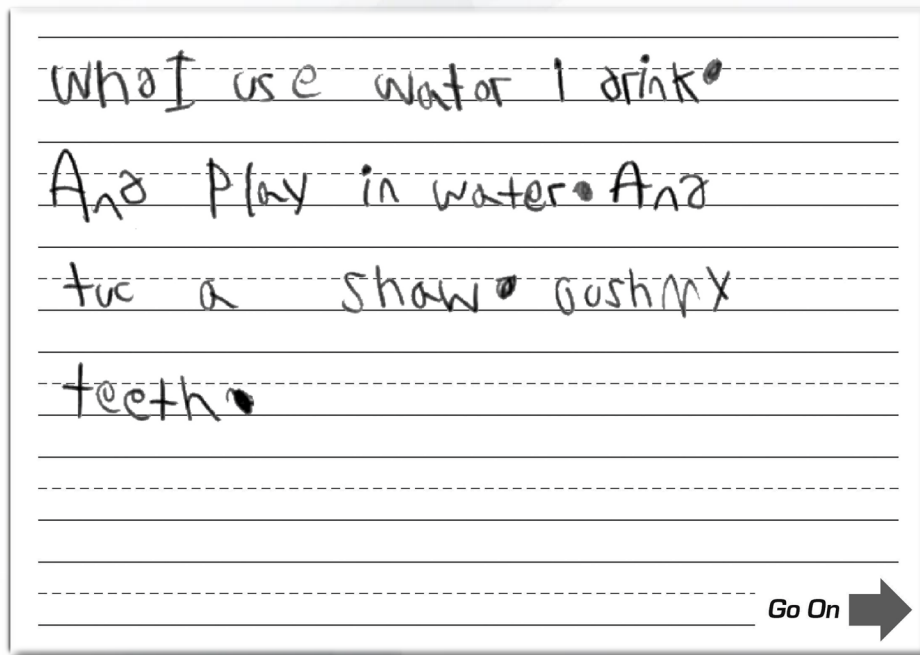 Wha I use wator I drink.
And Play in water. And
tuc a shaw. oushmy
teeth.
Go On